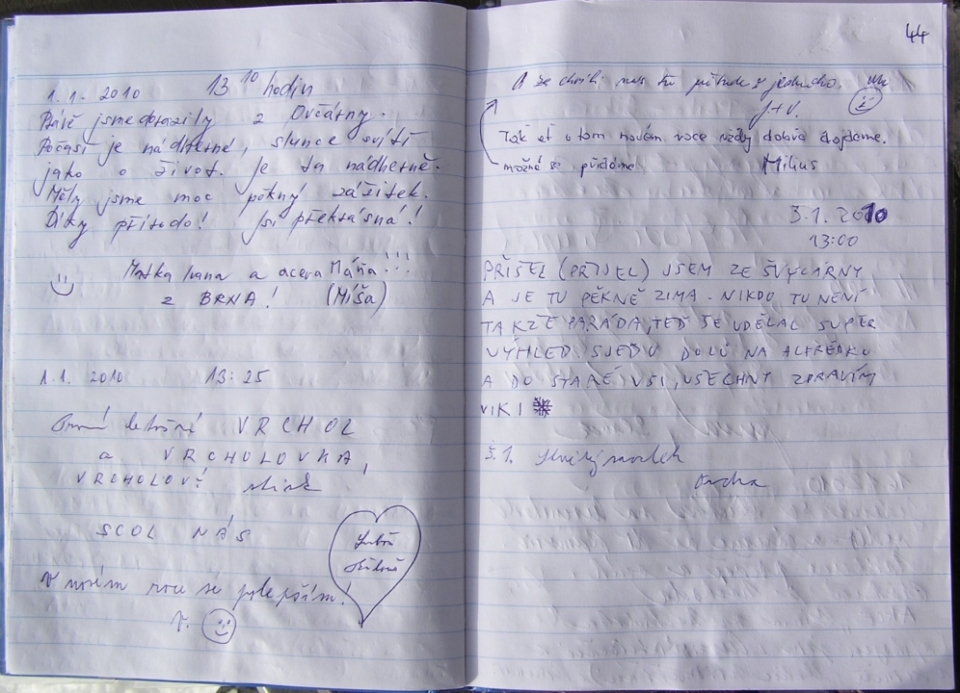 1.1.2010 13¹⁰ hodin
Právě jsme dorazily z Ovčárny.
Počasí je nádherné, slunce svítí
jako o život. Je tu nádherně.
Měly jsme moc pěkný zážitek.
Díky přírodo! Jsi překrásná!
Matka Ivana a dcera Máňa!!!
z BRNA! (Míša)
1.1. 2010 13:25
První letošní VRCHOL
a VRCHOLOVKA,
VRCHOLOVÝ
SCOL NÁS
Luboš
V novém roce se polepším!
V.
44
A že chybí: nás tu jednoho.
J+V.
Tak ať v tom novém roce vždy dobře dojdeme.
možná se přidáme Milius
3.1. 2010
13:00
PŘIŠEL (PŘIJEL) JSEM ZE ŠVÝCÁRNY
A JE TU PĚKNĚ ZIMA. NIKDO TU NENÍ
TAKŽE PARÁDA, TEĎ SE UDĚLAL SUPER
VÝHLED. SJEDU DOLŮ NA ALFRÉDKU
A DO STARÉ VSI, VŠECHNY ZDRAVÍM
VIKI
3.1.